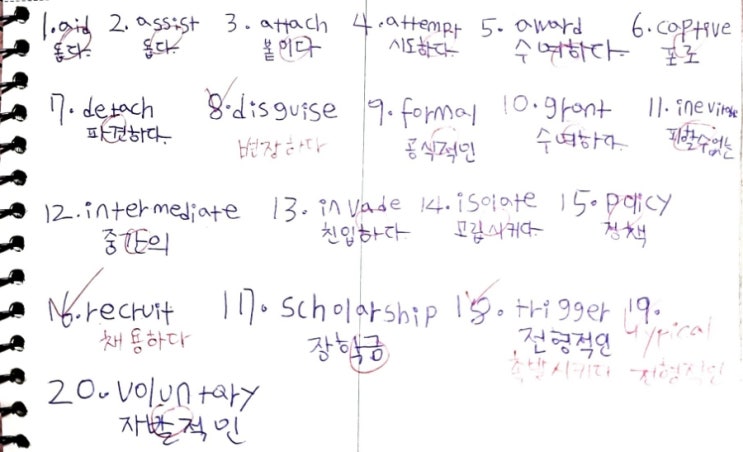 1. aid 2. assist 3. attach 4. attempt 5. award 6. captive
돕다. 돕다. 붙이다 시도하다. 수여하다. 포로
7. detach 8. disguise 9. formal 10. grant 11. inevitable
파견하다. 변장하다 공식적인 수여하다. 피할수없는
12. intermediate 13. invade 14. isolate 15. policy
중간의 친입하다. 고립시키다. 정책
16. recruit 17. scholarship 18. trigger 19.
채용하다 장학금 전형적인 typical
촉발시키다 전형적인
20. voluntary
자발적인